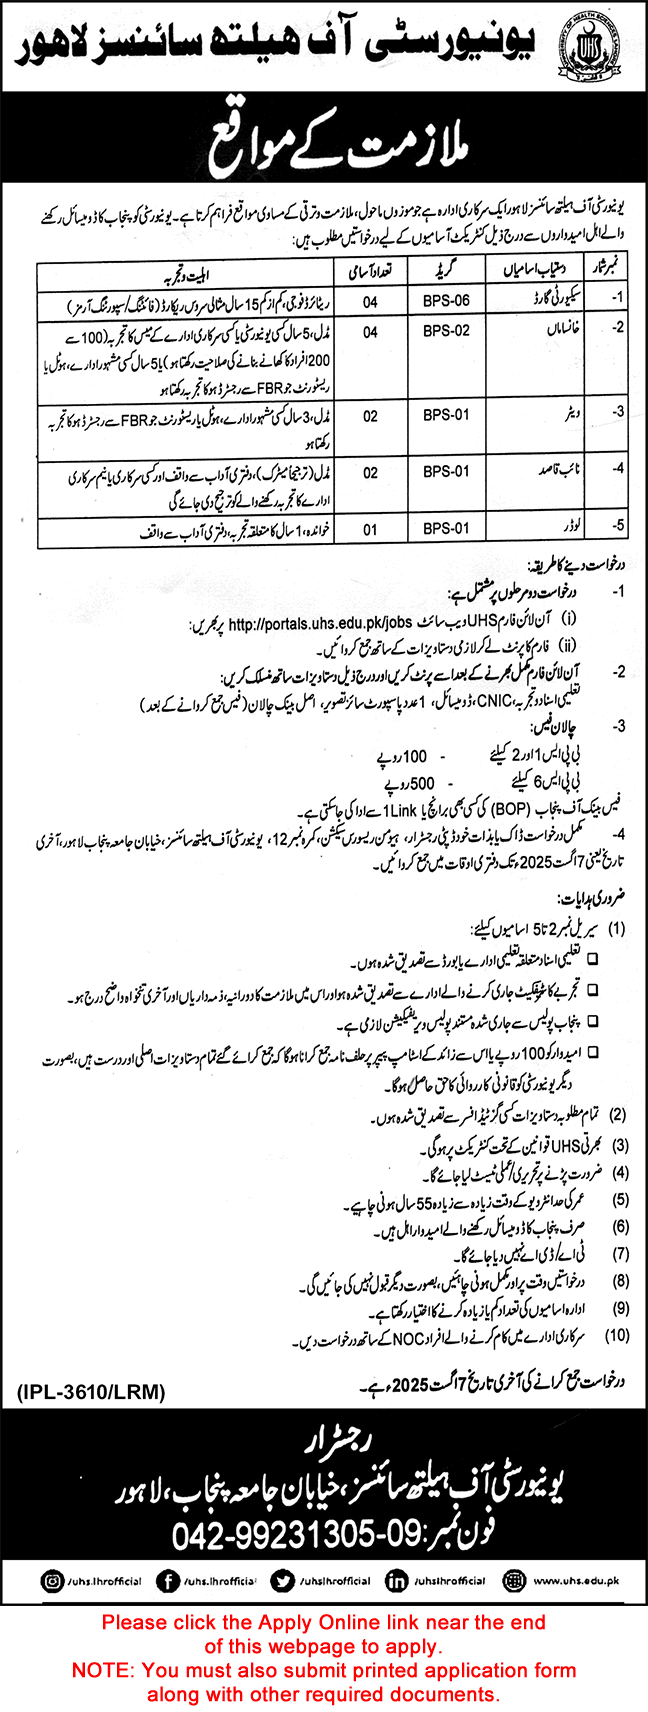 یونیورسٹی آف ہیلتھ سائنسز لاہور
UNIVERSITY OF HEALTH SCIENCES LAHORE
UHS
ملازمت کے مواقع
یونیورسٹی آف ہیلتھ سائنسز لاہور ایک سرکاری ادارہ ہے جو موزوں ماحول، ملازمت و ترقی کے مساوی مواقع فراہم کرتا ہے۔ یونیورسٹی کو پنجاب کا ڈومیسائل رکھنے
والے اہل امیدواروں سے درج ذیل کنٹریکٹ آسامیوں کے لیے درخواستیں مطلوب ہیں:
نمبر شمار دستیاب اسامیاں گریڈ تعداد آسامی اہلیت و تجربہ
1- سیکیورٹی گارڈ BPS-06 04 ریٹائرڈ فوجی، کم از کم 15 سال مثالی سروس ریکارڈ (فائٹنگ/سپورٹنگ آرمز)
2- خانساماں BPS-02 04 مڈل، 5 سال کسی یونیورسٹی یا کسی سرکاری ادارے کے میس کا تجربہ (100 سے
200 افراد کا کھانے بنانے کی صلاحیت رکھتا ہو) یا 5 سال کسی مشہور ادارے، ہوٹل یا
ریسٹورنٹ جو FBR سے رجسٹرڈ ہو کا تجربہ رکھتا ہو
3- ویٹر BPS-01 02 مڈل، 3 سال کسی مشہور ادارے، ہوٹل یا ریسٹورنٹ جو FBR سے رجسٹرڈ ہو کا تجربہ
رکھتا ہو
4- نائب قاصد BPS-01 02 مڈل (ترجیحاً میٹرک)، دفتری آداب سے واقف اور کسی سرکاری یا نیم سرکاری
ادارے کا تجربہ رکھنے والے کو ترجیح دی جائے گی
5- لوڈر BPS-01 01 خواندہ، 1 سال کا متعلقہ تجربہ، دفتری آداب سے واقف
درخواست دینے کا طریقہ:
1- درخواست دو مرحلوں پر مشتمل ہے:
(i) آن لائن فارم UHS ویب سائٹ http://portals.uhs.edu.pk/jobs پر بھریں:
(ii) فارم کا پرنٹ لے کر لازمی دستاویزات کے ساتھ جمع کروائیں۔
2- آن لائن فارم مکمل بھرنے کے بعد اسے پرنٹ کریں اور درج ذیل دستاویزات ساتھ منسلک کریں:
تعلیمی اسناد و تجربہ، CNIC، ڈومیسائل، 1 عدد پاسپورٹ سائز تصویر، اصل بینک چالان (فیس جمع کروانے کے بعد)
3- چالان فیس:
بی پی ایس 1 اور 2 کیلئے - 100 روپے
بی پی ایس 6 کیلئے - 500 روپے
فیس بینک آف پنجاب (BOP) کی کسی بھی برانچ یا 1Link سے ادا کی جاسکتی ہے۔
4- مکمل درخواست ڈاک یا بذات خود ڈپٹی رجسٹرار، ہیومن ریسورس سیکشن، کمرہ نمبر 12، یونیورسٹی آف ہیلتھ سائنسز، خیابان جامعہ پنجاب لاہور، آخری
تاریخ یعنی 7 اگست 2025ء تک دفتری اوقات میں جمع کروائیں۔
ضروری ہدایات:
(1) سیریل نمبر 2 تا 5 اسامیوں کیلئے:
❑ تعلیمی اسناد متعلقہ تعلیمی ادارے یا بورڈ سے تصدیق شدہ ہوں۔
❑ تجربے کا سرٹیفکیٹ جاری کرنے والے ادارے سے تصدیق شدہ ہو اور اس میں ملازمت کا دورانیہ، ذمہ داریاں اور آخری تنخواہ واضح درج ہو۔
❑ پنجاب پولیس سے جاری شدہ مستند پولیس ویریفیکیشن لازمی ہے۔
❑ امیدوار کو 100 روپے یا اس سے زائد کے اسٹامپ پیپر پر حلف نامہ جمع کرانا ہوگا کہ جمع کرائے گئے تمام دستاویزات اصلی اور درست ہیں، بصورت
دیگر یونیورسٹی کو قانونی کارروائی کا حق حاصل ہوگا۔
(2) تمام مطلوبہ دستاویزات کسی گزٹیڈ افسر سے تصدیق شدہ ہوں۔
(3) بھرتی UHS قوانین کے تحت کنٹریکٹ پر ہوگی۔
(4) ضرورت پڑنے پر تحریری/عملی ٹیسٹ لیا جائے گا۔
(5) عمر کی حد انٹرویو کے وقت زیادہ سے زیادہ 55 سال ہونی چاہیے۔
(6) صرف پنجاب کا ڈومیسائل رکھنے والے امیدوار اہل ہیں۔
(7) ٹی اے/ڈی اے نہیں دیا جائے گا۔
(8) درخواستیں وقت پر اور مکمل ہونی چاہئیں، بصورت دیگر قبول نہیں کی جائیں گی۔
(9) ادارہ اسامیوں کی تعداد کم یا زیادہ کرنے کا اختیار رکھتا ہے۔
(10) سرکاری ادارے میں کام کرنے والے افراد NOC کے ساتھ درخواست دیں۔
درخواست جمع کرانے کی آخری تاریخ 7 اگست 2025ء ہے۔
(IPL-3610/LRM)
رجسٹرار
یونیورسٹی آف ہیلتھ سائنسز، خیابان جامعہ پنجاب، لاہور
فون نمبر: 042-99231305-09
/uhs.lhrofficial /uhs.lhrofficial /uhslhrofficial /uhslhrofficial www.uhs.edu.pk
Please click the Apply Online link near the end
of this webpage to apply.
NOTE: You must also submit printed application form
along with other required documents.